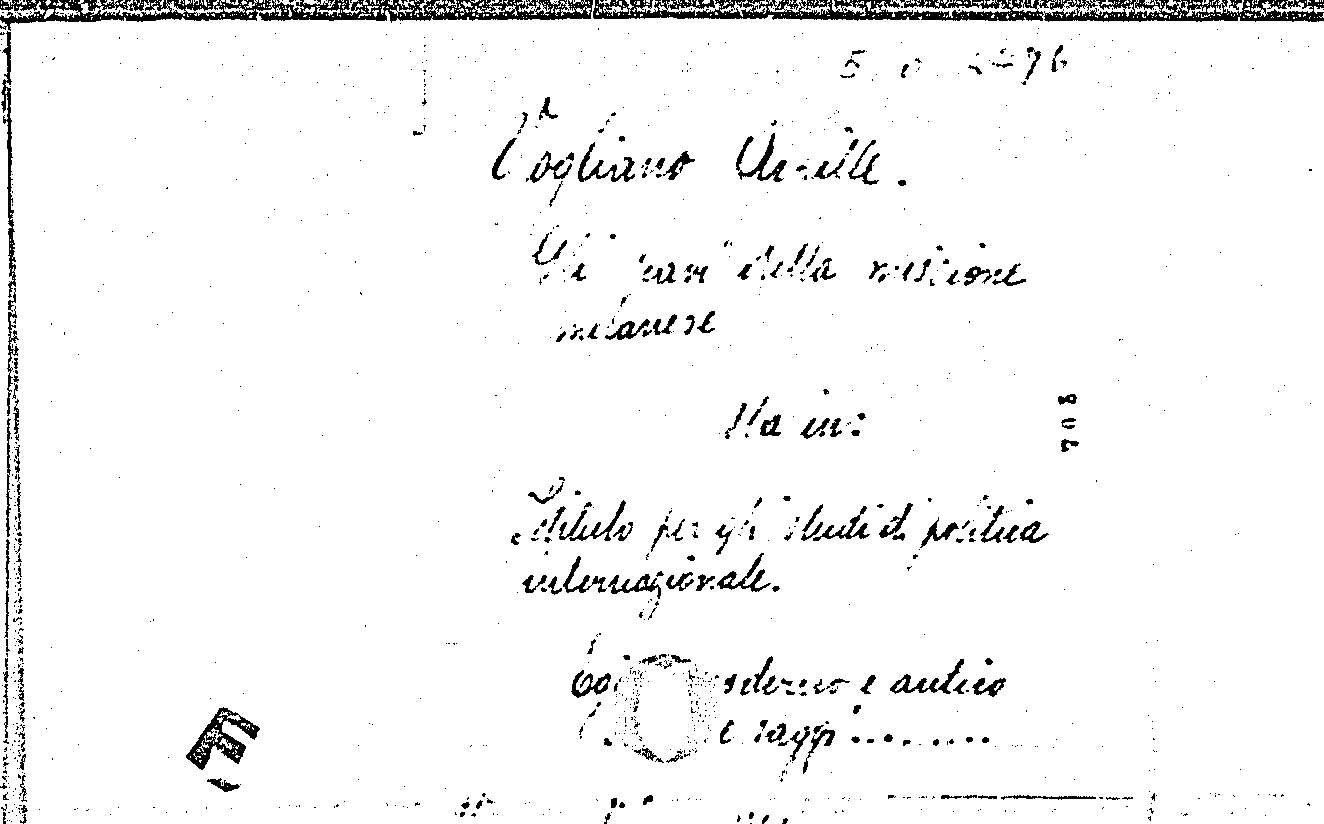 Vogliano Achille.
Gli "scavi" della missione
milanese
Sta in:
Istituto per gli studi di politica
internazionale.
moderno e antico
e saggi ........
708